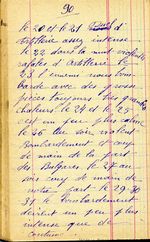 90
le 20 et le 21 d
artillerie assez intense
le 22 dans la nuit violente
rafales d'artillerie le
23 l'ennemi nous bom
barde avec des grosses
pièces toujours les grandes
chaleurs le 24 et le 25
c'est un peu plus calme
le 26 au soir violent
Bombardement et coup
de main de la part
des Bulgares le 27 au
soir coup de main de
notre part le 29-30
31 le bombardement
devient un peu plus
intense que de
coutume